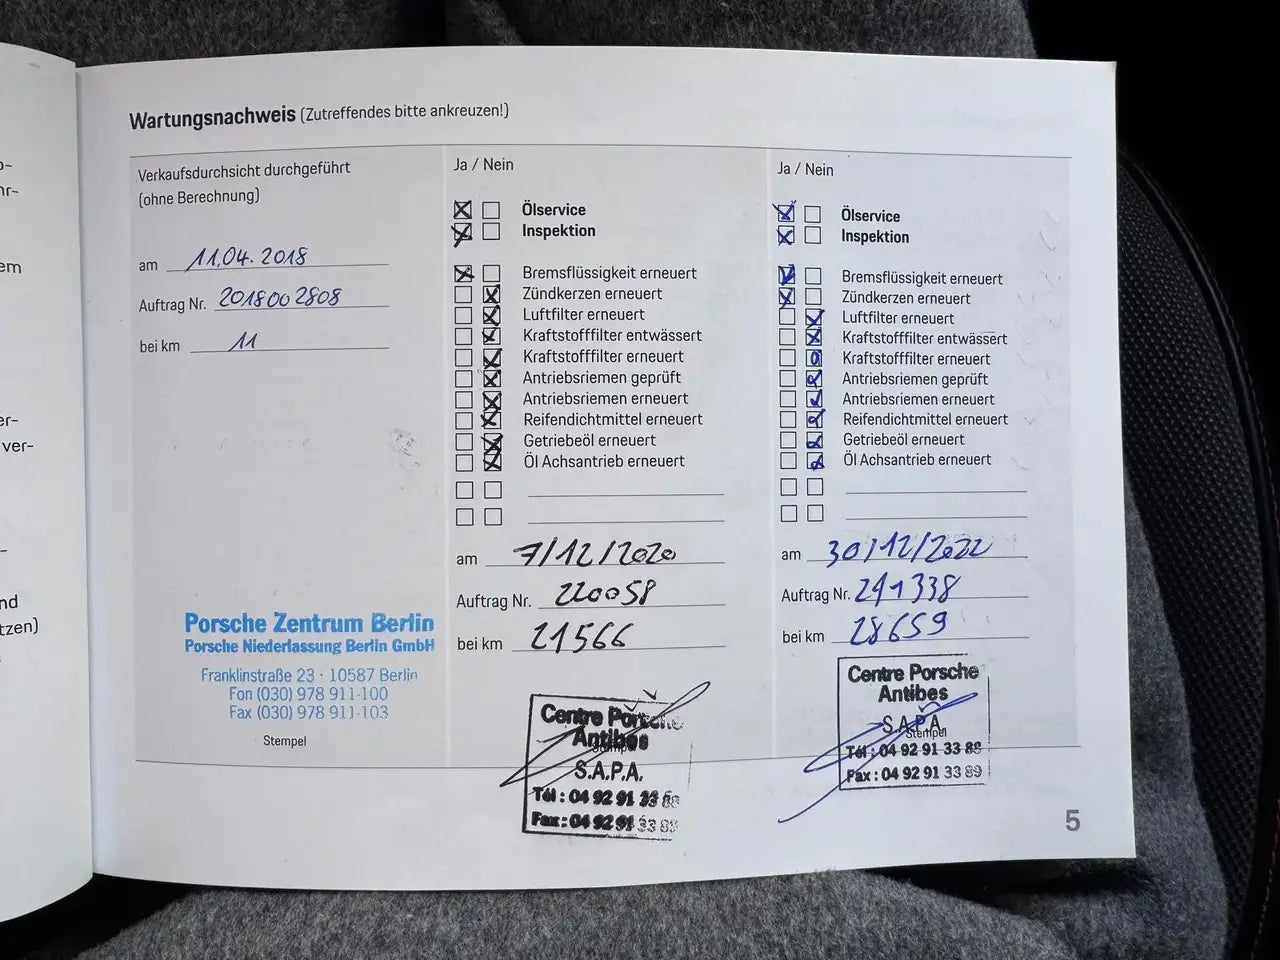 Wartungsnachweis (Zutreffendes bitte ankreuzen!)
Verkaufsdurchsicht durchgeführt
(ohne Berechnung)
am 11.04.2018
Auftrag Nr. 2018002808
bei km 11
Porsche Zentrum Berlin
Porsche Niederlassung Berlin GmbH
Franklinstraße 23 · 10587 Berlin
Fon (030) 978 911-100
Fax (030) 978 911-103
Stempel
Ja / Nein
Ölservice
Inspektion
Bremsflüssigkeit erneuert
Zündkerzen erneuert
Luftfilter erneuert
Kraftstofffilter entwässert
Kraftstofffilter erneuert
Antriebsriemen geprüft
Antriebsriemen erneuert
Reifendichtmittel erneuert
Getriebeöl erneuert
Öl Achsantrieb erneuert
am 7/12/2020
Auftrag Nr. 220058
bei km 21566
Centre Porsche
Antibes
Stempel
S.A.P.A.
Tél : 04 92 91 33 89
Fax : 04 92 91 33 89
Ja / Nein
Ölservice
Inspektion
Bremsflüssigkeit erneuert
Zündkerzen erneuert
Luftfilter erneuert
Kraftstofffilter entwässert
Kraftstofffilter erneuert
Antriebsriemen geprüft
Antriebsriemen erneuert
Reifendichtmittel erneuert
Getriebeöl erneuert
Öl Achsantrieb erneuert
am 30/12/2022
Auftrag Nr. 241338
bei km 28659
Centre Porsche
Antibes
S.A.P.A.
Stempel
Tél : 04 92 91 33 89
Fax : 04 92 91 33 89
5
em
ver-
nd
tzen)